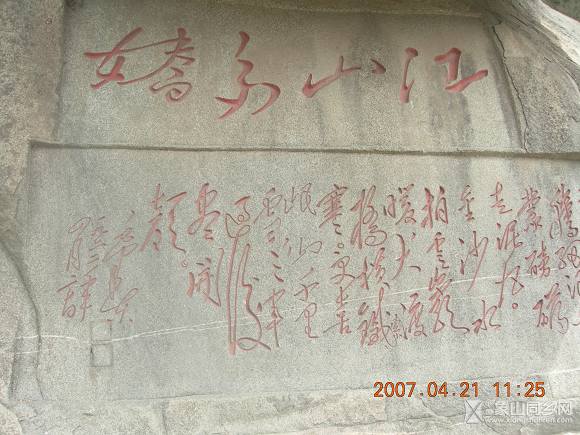 江山多嬌
騰細浪
蒙磅礴
走泥丸。
金沙水
拍雲崖
暖大渡
橋橫鐵索
寒。更喜
岷山千里
雪三軍
過後
尽開
顏。
2007.04.21 11:25
象山同乡网
www.xiangshanren.com